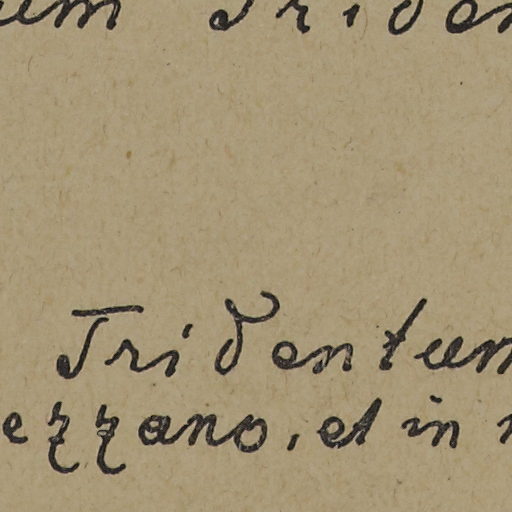 um Triden
Tridentum
ezzano, et in